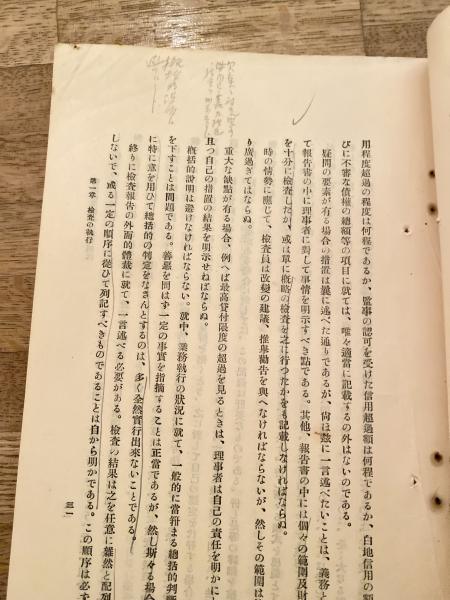 用程度超過の程度は何程であるか、監事の認可を受けた信用超過額は何程であるか、白地信用の
びに不審な債權の總額等の項目に就ては、唯々適當に記載するの外はないのである。
疑問の要素が有る場合の措置は曩に述べた通りであるが、尙ほ玆に一言述べたいことは、義務と
て報告書の中に理事者に對して事情を明示すべき點である。其他、報告書の中には個々の範圍及
を十分に檢査したか、或は單に槪略の檢査を之に行つたかをも記載しなければならぬ。
時の情勢に應じて、檢査員は改變の建議、推擧勸告を與へなければならないが、然しその範圍は
り廣過ぎてはならぬ。
重大な缺點が有る場合、例へば最高貸付限度の超過を見るときは、理事者は自己の責任を明かに
且つ自己の措置の結果を明示せねばならぬ。
槪括的說明は避けなければならない。就中、業務執行の狀況に就て、一般的に當箝まる總括的判
を下すことは問題である。善惡を問はず一定の事實を指摘することは正當であるが、然し斯々る場
に特に意を用ひて總括的の判定をなさんとするのは、多く全然實行出來ないことである。
終りに檢査報告の外面的體裁に就て、一言述べる必要がある。檢査の結果は之を任意に雜然と配列
しないで、或る一定の順序に從ひて列記すべきものであることは自から明かである。この順序は必
第一章 檢査の執行
三一